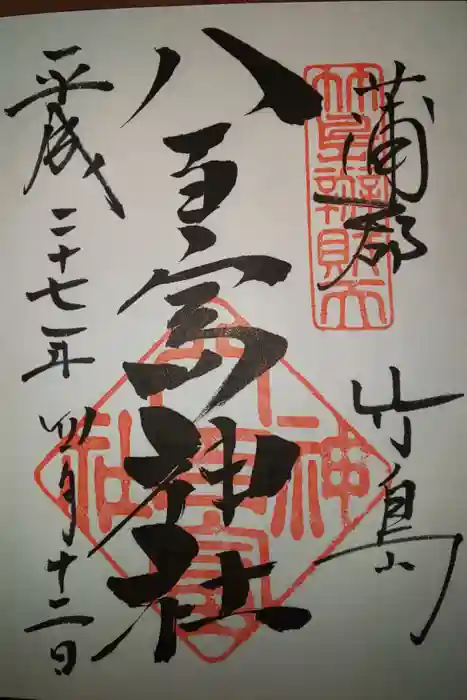 蒲郡
竹島
八百富神社
平成二十七年四月十二日
竹島辨財天
八百富神社